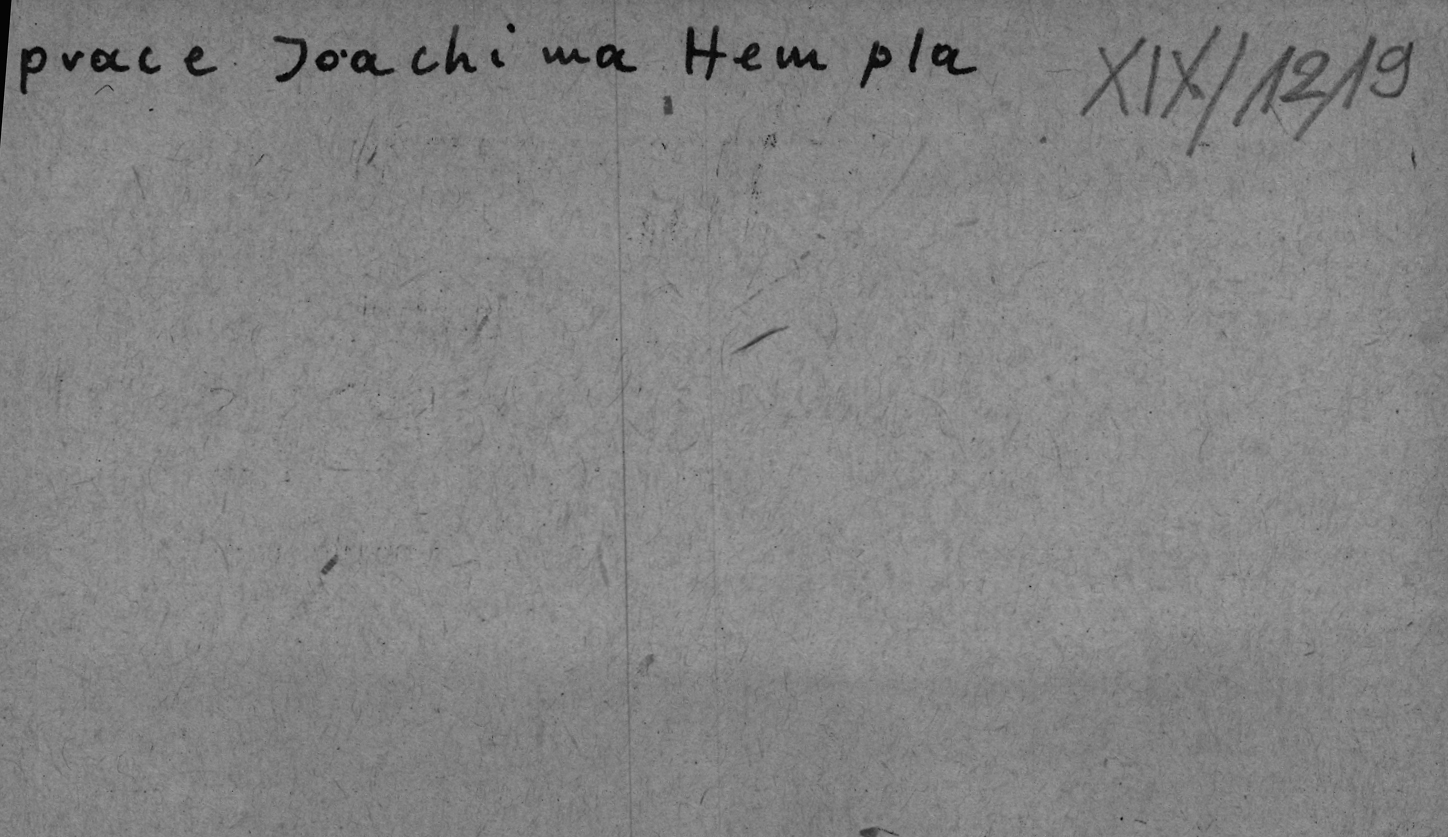 prace Joachima Hempla XIX/12,19